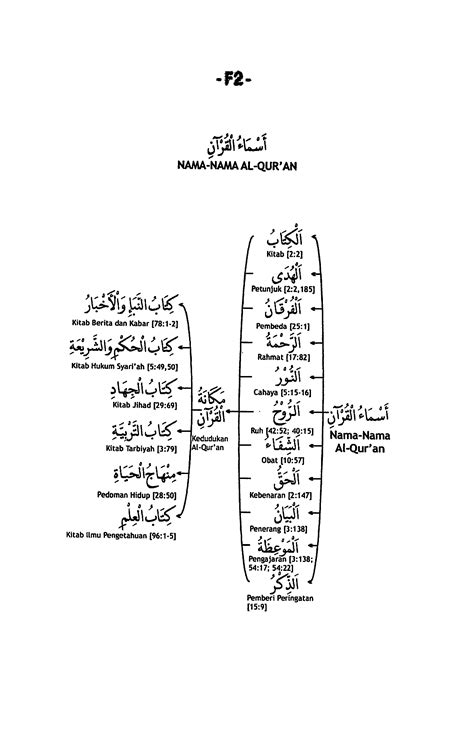 -F2-
أَسْمَاءُ الْقُرْآنِ
NAMA-NAMA AL-QUR'AN
أَسْمَاءُ الْقُرْآنِ
Nama-Nama
Al-Qur'an
اَلْكِتَابُ
Kitab [2:2]
اَلْهُدَى
Petunjuk [2:2,185]
اَلْفُرْقَانُ
Pembeda [25:1]
اَلرَّحْمَةُ
Rahmat [17:82]
اَلنُّوْرُ
Cahaya [5:15-16]
اَلرُّوْحُ
Ruh [42:52; 40:15]
اَلشِّفَاءُ
Obat [10:57]
اَلْحَقُّ
Kebenaran [2:147]
اَلْبَيَانُ
Penerang [3:138]
اَلْمَوْعِظَةُ
Pengajaran [3:138;
54:17; 54:22]
اَلذِّكْرُ
Pemberi Peringatan
[15:9]
مَكَانَةُ
الْقُرْآنِ
Kedudukan
Al-Qur'an
كِتَابُ النَّبَإِ وَالْأَخْبَارُ
Kitab Berita dan Kabar [78:1-2]
كِتَابُ الْحُكْمِ وَالشَّرِيْعَةِ
Kitab Hukum Syari'ah [5:49,50]
كِتَابُ الْجِهَادِ
Kitab Jihad [29:69]
كِتَابُ التَّرْبِيَّةِ
Kitab Tarbiyah [3:79]
مِنْهَاجُ الْحَيَاةِ
Pedoman Hidup [28:50]
كِتَابُ الْعِلْمِ
Kitab Ilmu Pengetahuan [96:1-5]